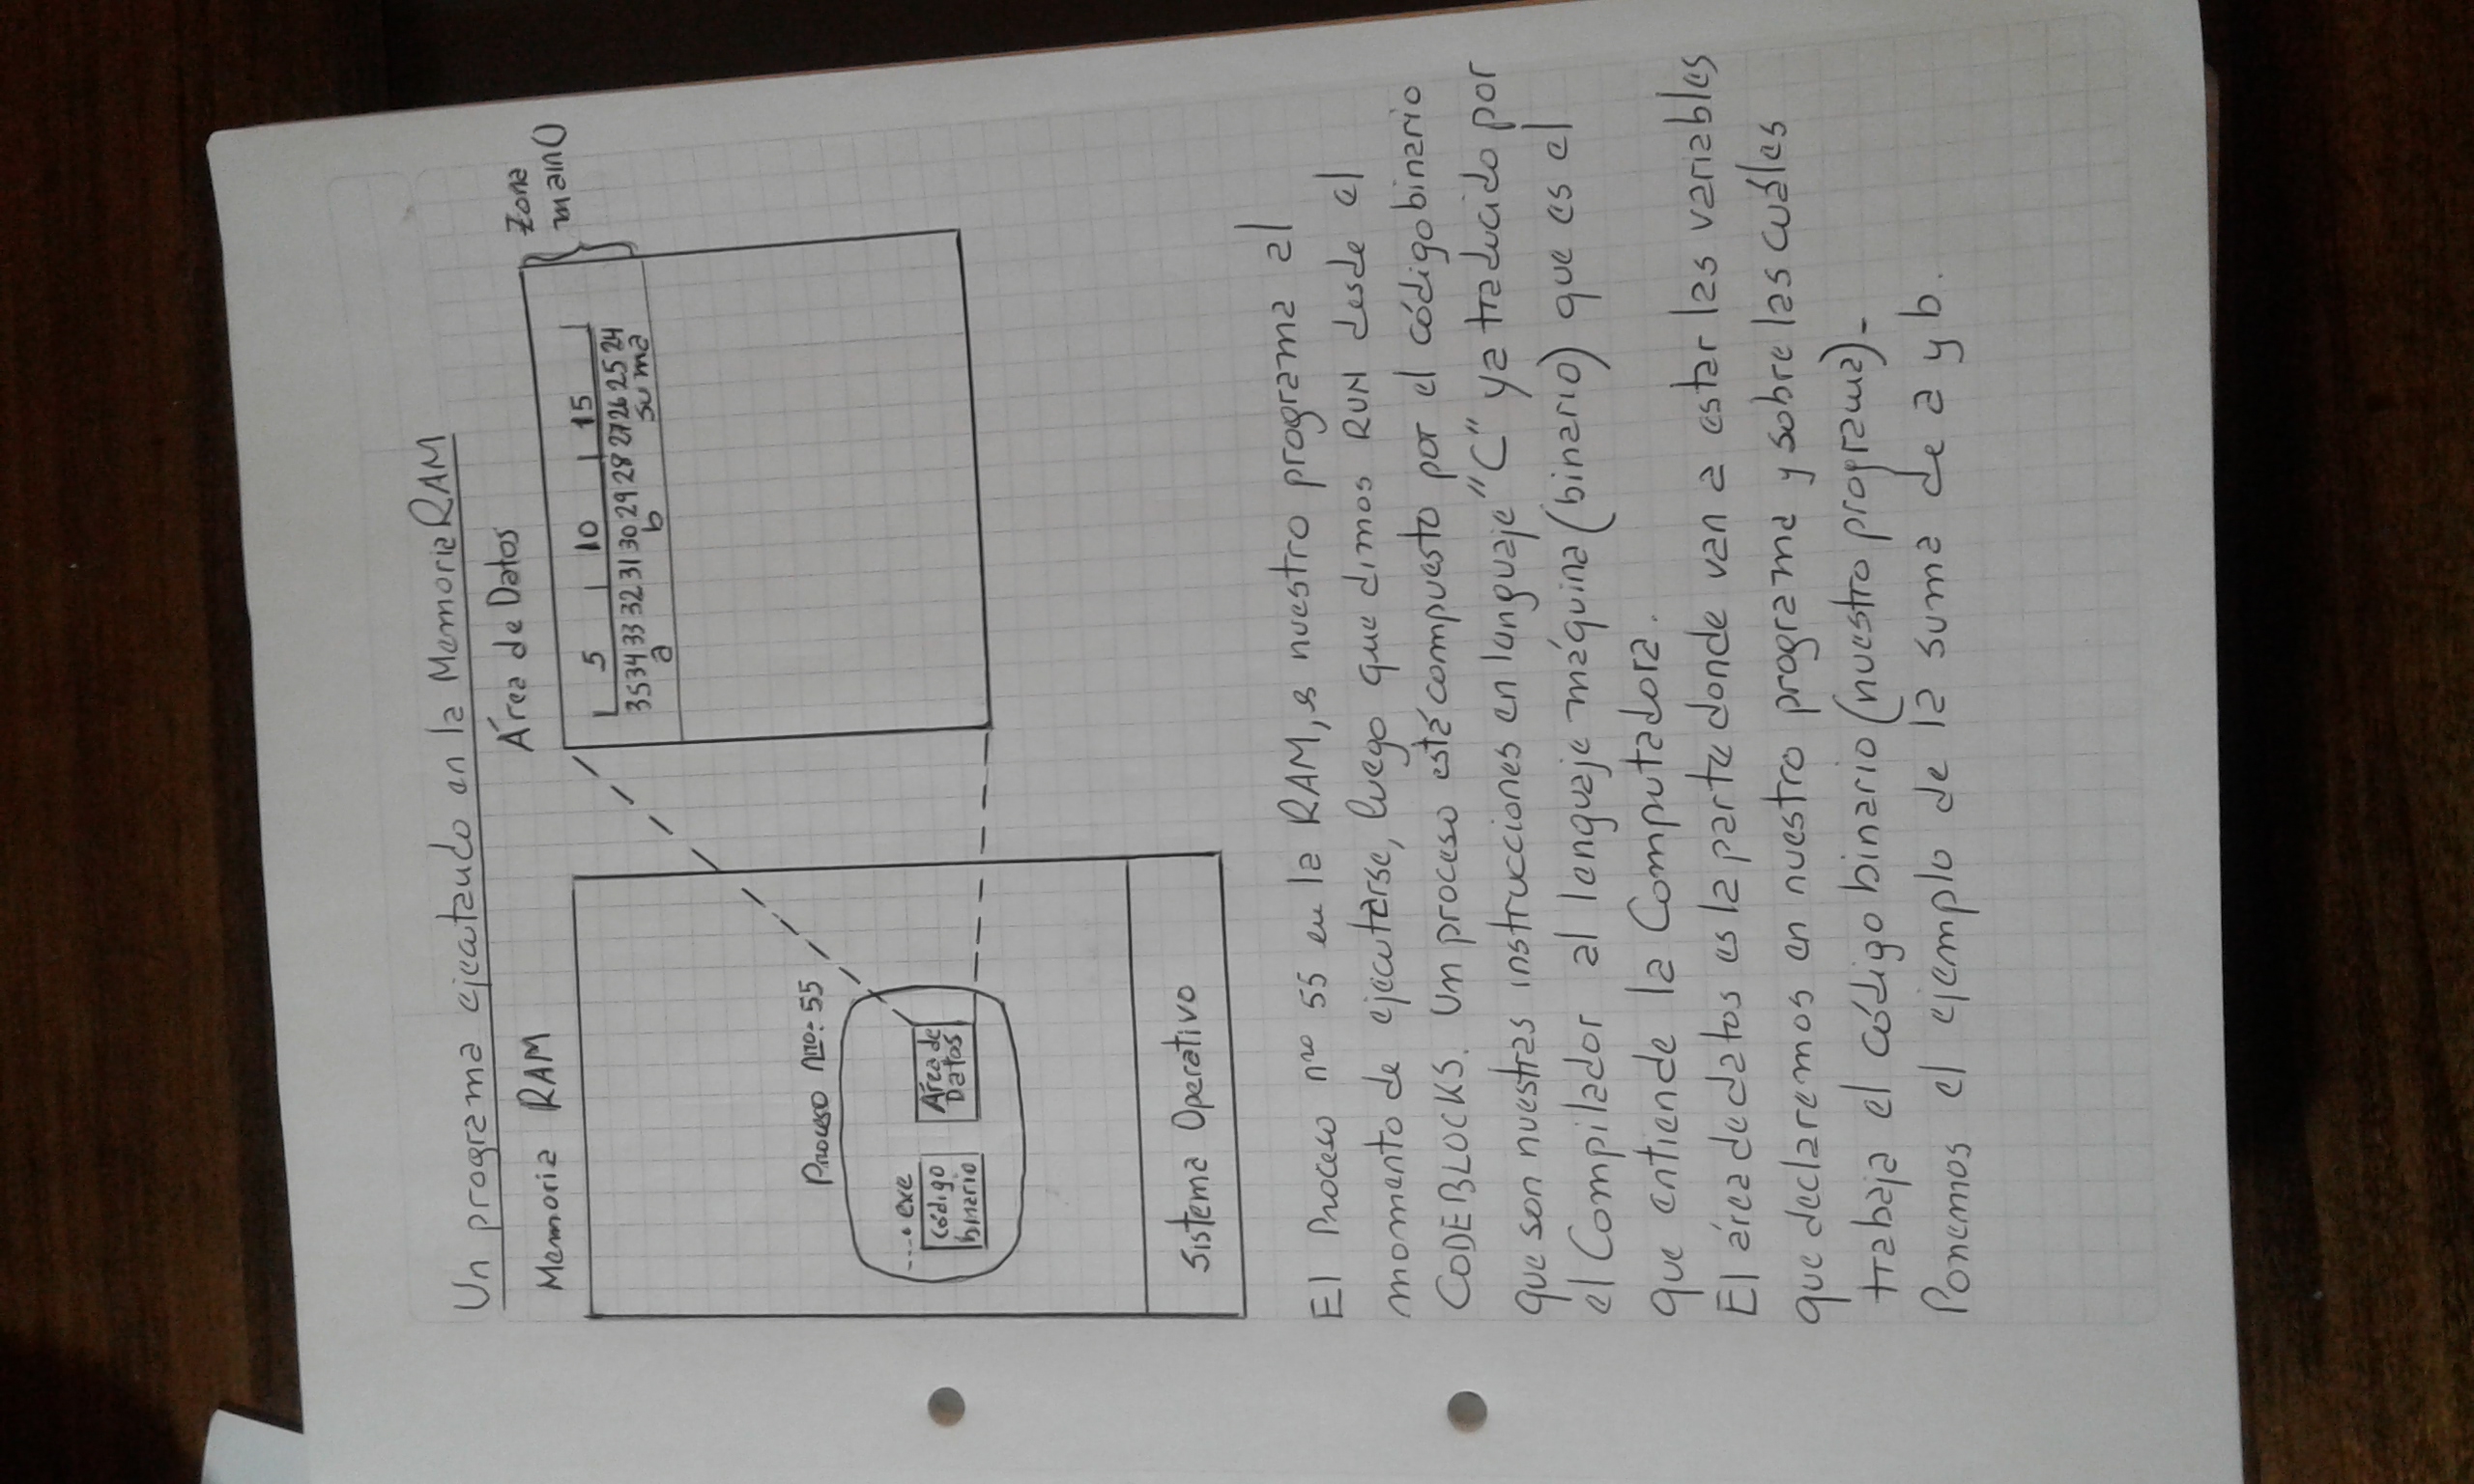 Un programa ejecutando en la Memoria RAM
Memoria RAM
Área de Datos
Zona
main()
5 10 15
35 34 33 32 31 30 29 28 27 26 25 24
a b suma
Proceso nro: 55
----.exe
Código
binario
Área de
Datos
Sistema Operativo
El Proceso nro 55 en la RAM, es nuestro programa al
momento de ejecutarse, luego que dimos RUN desde el
CODEBLOCKS. Un proceso está compuesto por el código binario
que son nuestras instrucciones en lenguaje "C" ya traducido por
el Compilador al lenguaje máquina (binario) que es el
que entiende la Computadora.
El área de datos es la parte donde van a estar las variables
que declaremos en nuestro programa y sobre las cuáles
trabaja el código binario (nuestro programa).
Ponemos el ejemplo de la suma de a y b.